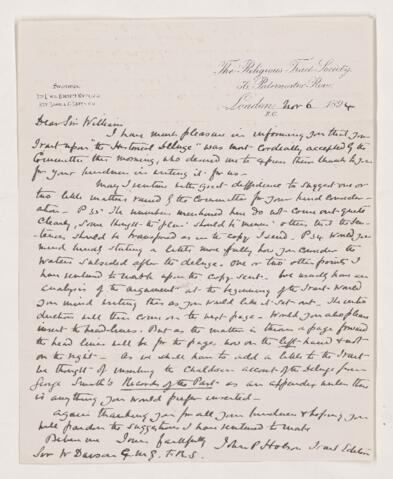 The Religious Tract Society,
56 Paternoster Row
London Nov 6 1894
E.C.
Secretaries
Dear Sir William
I have much pleasure in informing you that your
Tract upon the "Historical Deluge" was most cordially accepted by the
Committee this morning, who desired me to express their thanks to you
for your kindness in writing it for us -
May I venture with great diffidence to suggest one or
two little matters raised by the Committee for your kind consider
ation - P 33 The numbers mentioned here do not come out quite
clearly, some thought the 'plus' should be 'minus' others that the sen-
tences should be transposed as in the copy I send. P 34 Would you
mind kindly stating a little more fully how you consider the
waters subsided after the deluge. One or two other points I
have ventured to mark upon the copy sent. We usually have an
analysis of the argument at the beginning of the Tract. Would
you mind writing this as you would like it set out. The intro
duction will then come on the next page - Would you also please
insert the head-lines. But as the matter is thrown a page forward
the head lines will be for the pages now on the left hand & not
on the right - As we shall have to add a little to the Tract
we thought of inserting the Chaldean account of the deluge from
George Smith's Records of the Past as an appendix unless there
is anything you would prefer inserted -
Again thanking you for all your kindness & hoping you
will pardon the suggestions I have ventured to make
Believe me Yours faithfully John P Hobson Tract Editor
Sir W Dawson C.M.G. F.R.S.